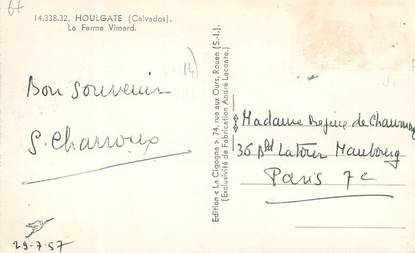 67
14.338.32. HOULGATE (Calvados).
La Ferme Vimard.
Bon souvenir
S. Charroux
29-7-57
Edition « La Cigogne », 74, rue aux Ours, Rouen (S.-I.)
(Exclusivité de Fabrication André Leconte.)
Madame Régine de
36 Bd Latour Maubourg
Paris 7e